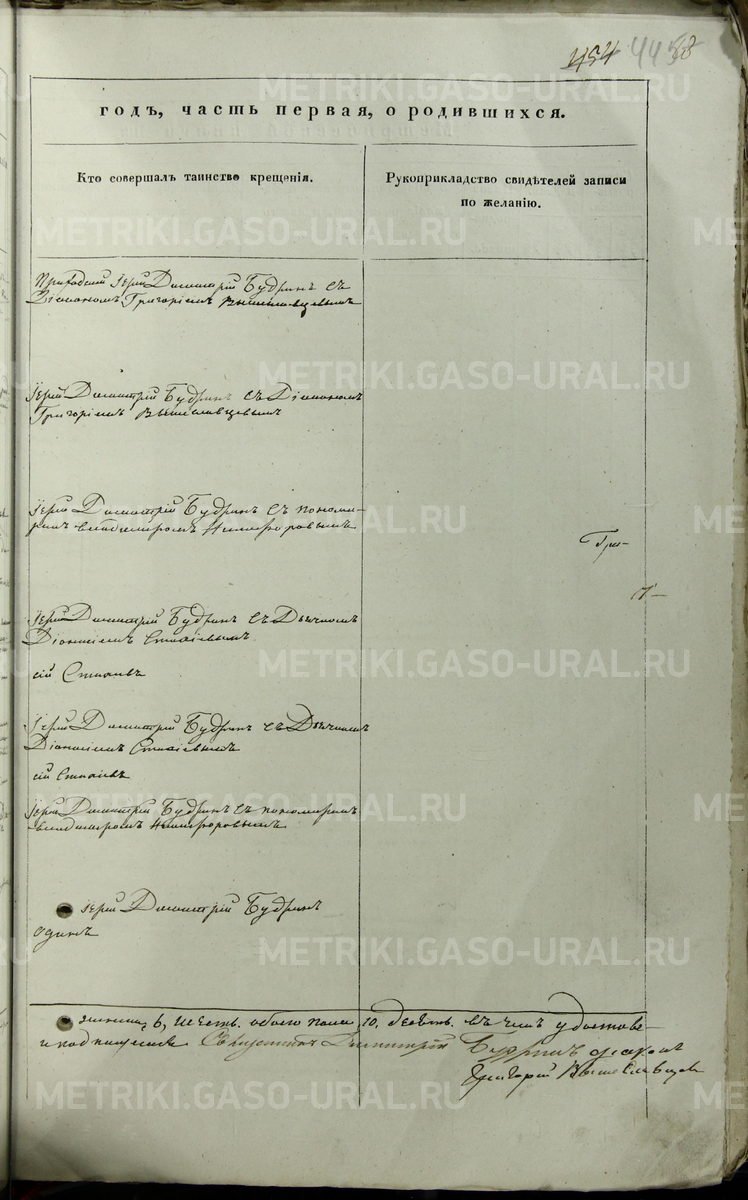 454 445 88
годъ, часть первая, о родившихся.
Кто совершалъ таинство крещенія.
Рукоприкладство свидѣтелей записи
по желанію.
Приходскій Іерей Димитрій Будринъ съ
Діакономъ Григоріемъ Вышеславцевымъ
Іерей Димитрій Будринъ съ Діакономъ
Григоріемъ Вышеславцевымъ
Іерей Димитрій Будринъ съ понома-
ремъ Владимиромъ Никифоровымъ
Гри-
Іерей Димитрій Будринъ съ Дьячкомъ
Діонисіемъ
сій
Іерей Димитрій Будринъ съ Дьячкомъ
Діонисіемъ
сій
Іерей Димитрій Будринъ съ пономаремъ
Владимиромъ Никифоровымъ
Іерей Димитрій Будринъ
одинъ
6, шесть. обоего пола 10. десять. въ чемъ удостове-
и подписуемся Священникъ Димитрій Будринъ діаконъ
Григорій Вышеславцевъ
METRIKI.GASO-URAL.RU